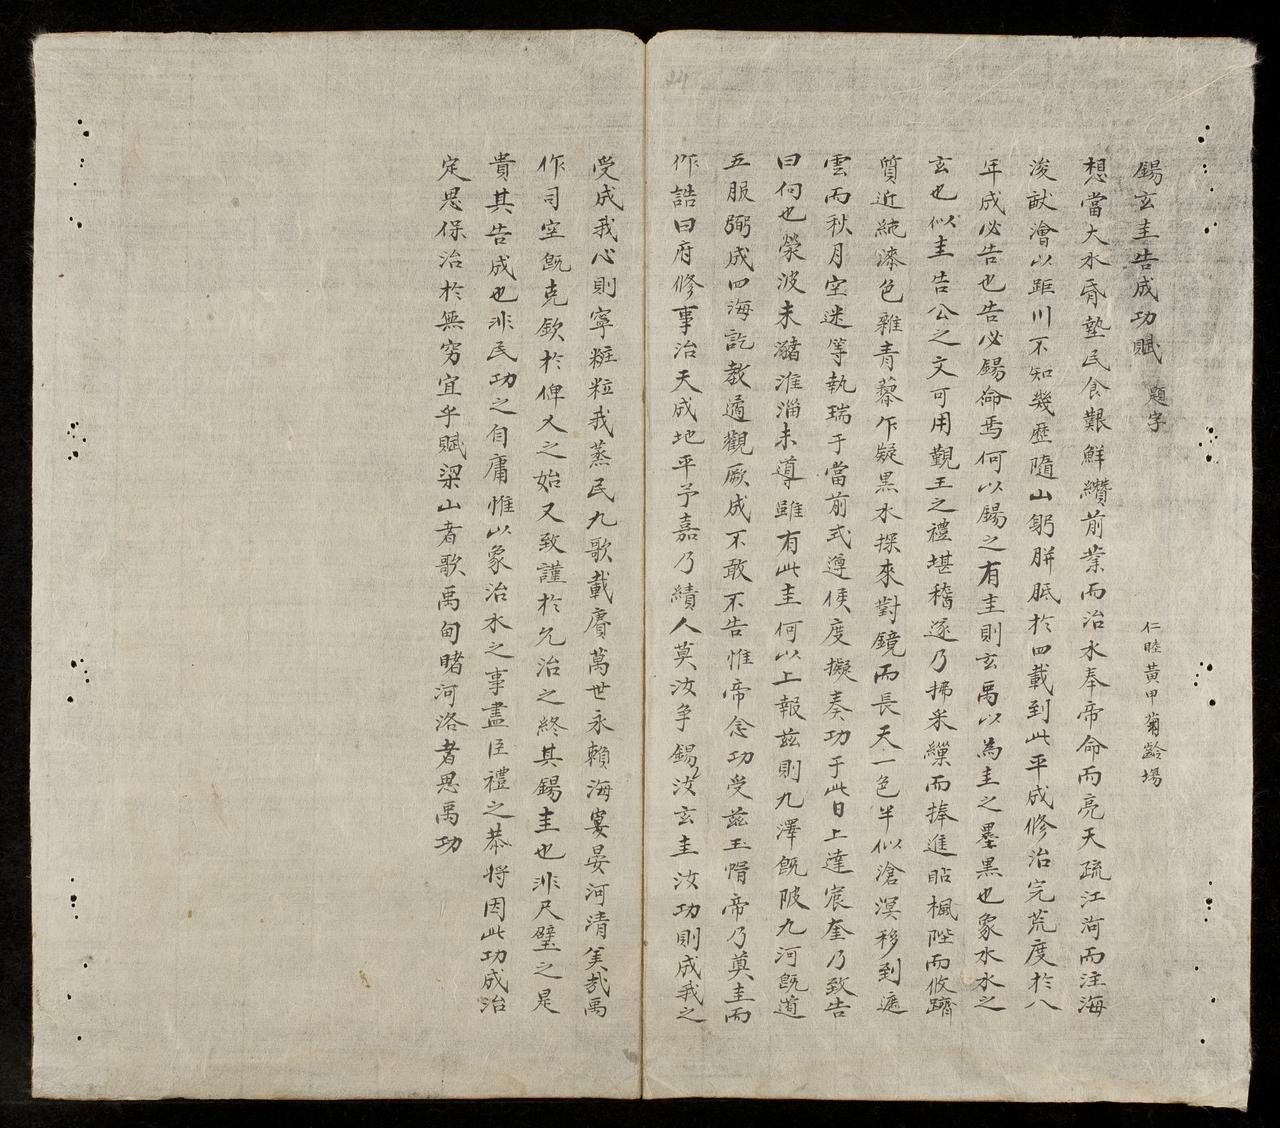 錫玄圭告成功賦 題字 仁睦黃甲菊齡場
想當大水昏墊民食艱鮮纘前業而治水奉帝命而亮天疏江河而注海
浚畎澮以距川不知幾歷隨山躬胼胝於四載到此平成修治完荒度於八
年成必告也告必錫命焉何以錫之有圭則玄禹以為圭之墨黑也象水水之
玄也似圭告公之文可用觀王之禮堪稽遂乃拂采繅而捧進貼楓陛而攸躋
質近純漆色雜青藜乍疑黑水探來對鏡而長天一色半似滄溟移到遮
雲而秋月空迷等執瑞于當前式遵侯度擬奏功于此日上達宸奎乃致告
曰何也滎波未瀦淮淄未導雖有此圭何以上報茲則九澤旣陂九河旣道
五服弼成四海訖教遹觀厥成不敢不告惟帝念功受茲玉帽帝乃奠圭而
作誥曰府修事治天成地平予嘉乃績人莫汝爭錫汝玄圭汝功則成我之
受成我心則寧粧粒我蒸民九歌載賡萬世永賴海宴晏河清美哉禹
作司空旣克欽於俾乂之始又致謹於允治之終其錫圭也非尺璧之是
貴其告成也非民功之自庸惟以象治水之事盡臣禮之恭將因此功成治
定思保治於無窮宜乎賦梁山者歌禹甸睹河洛者思禹功